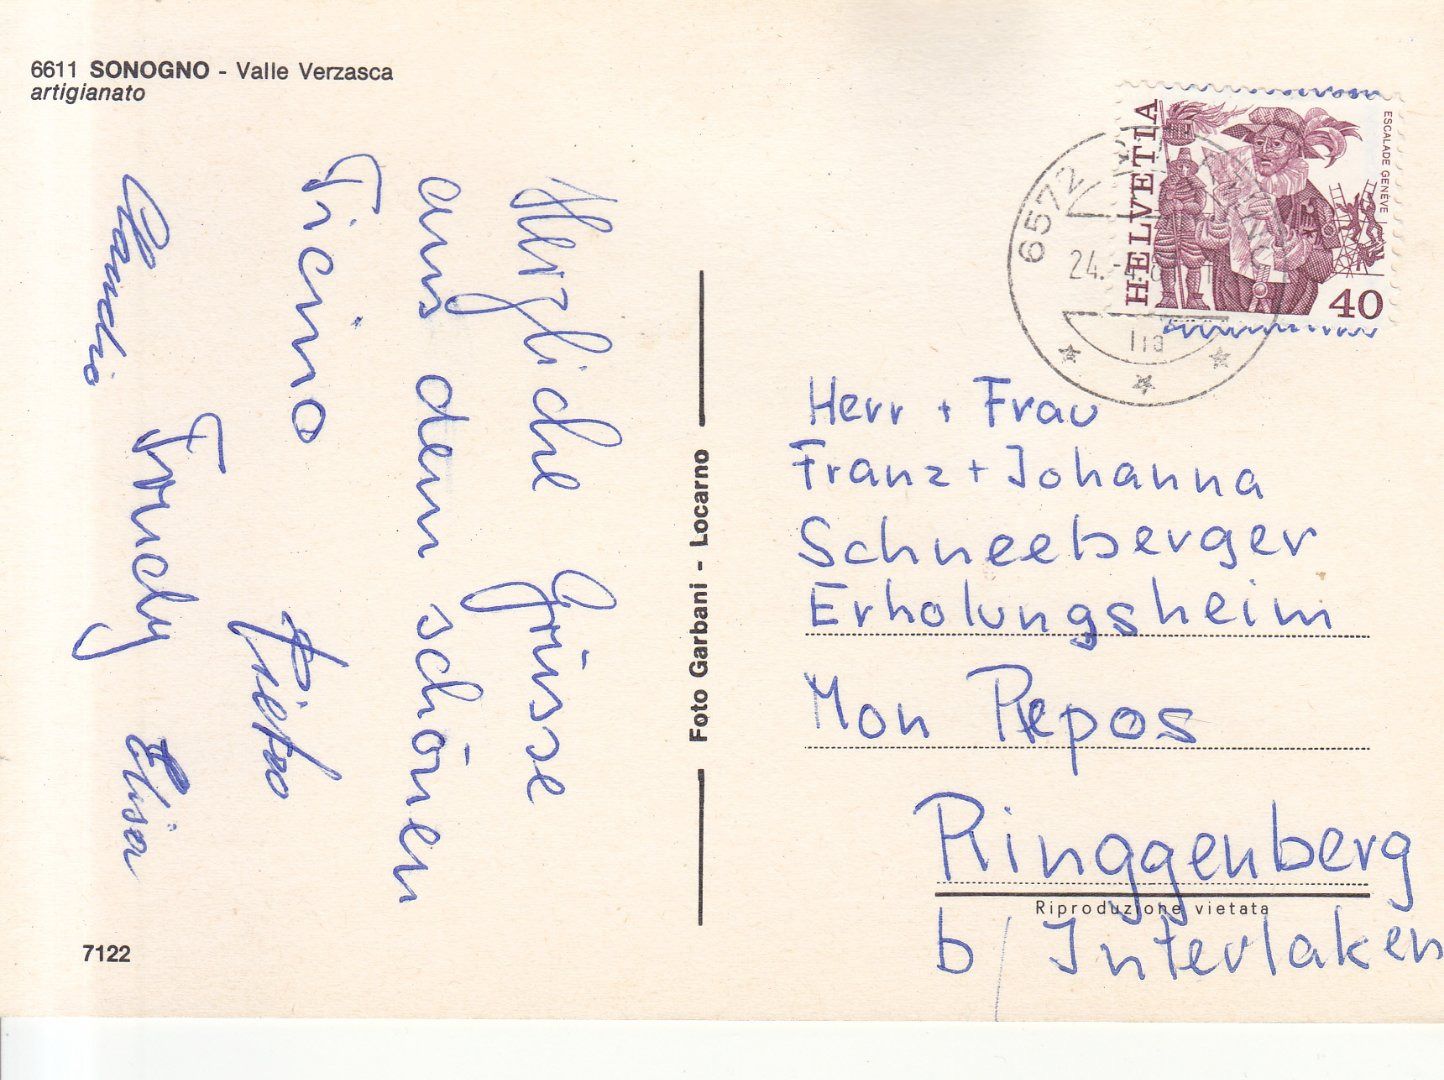 6611 SONOGNO - Valle Verzasca
artigianato
Herzliche Grüsse
aus dem schönen
Ticino
Pietro
Claudio Trudy Elisa
7122
Foto Garbani - Locarno
HELVETIA
ESCALADE GENÈVE
40
6572
24.-4.8
Herr + Frau
Franz + Johanna
Schneeberger
Erholungsheim
Mon Repos
Ringgenberg
Riproduzione vietata
b/ Interlaken